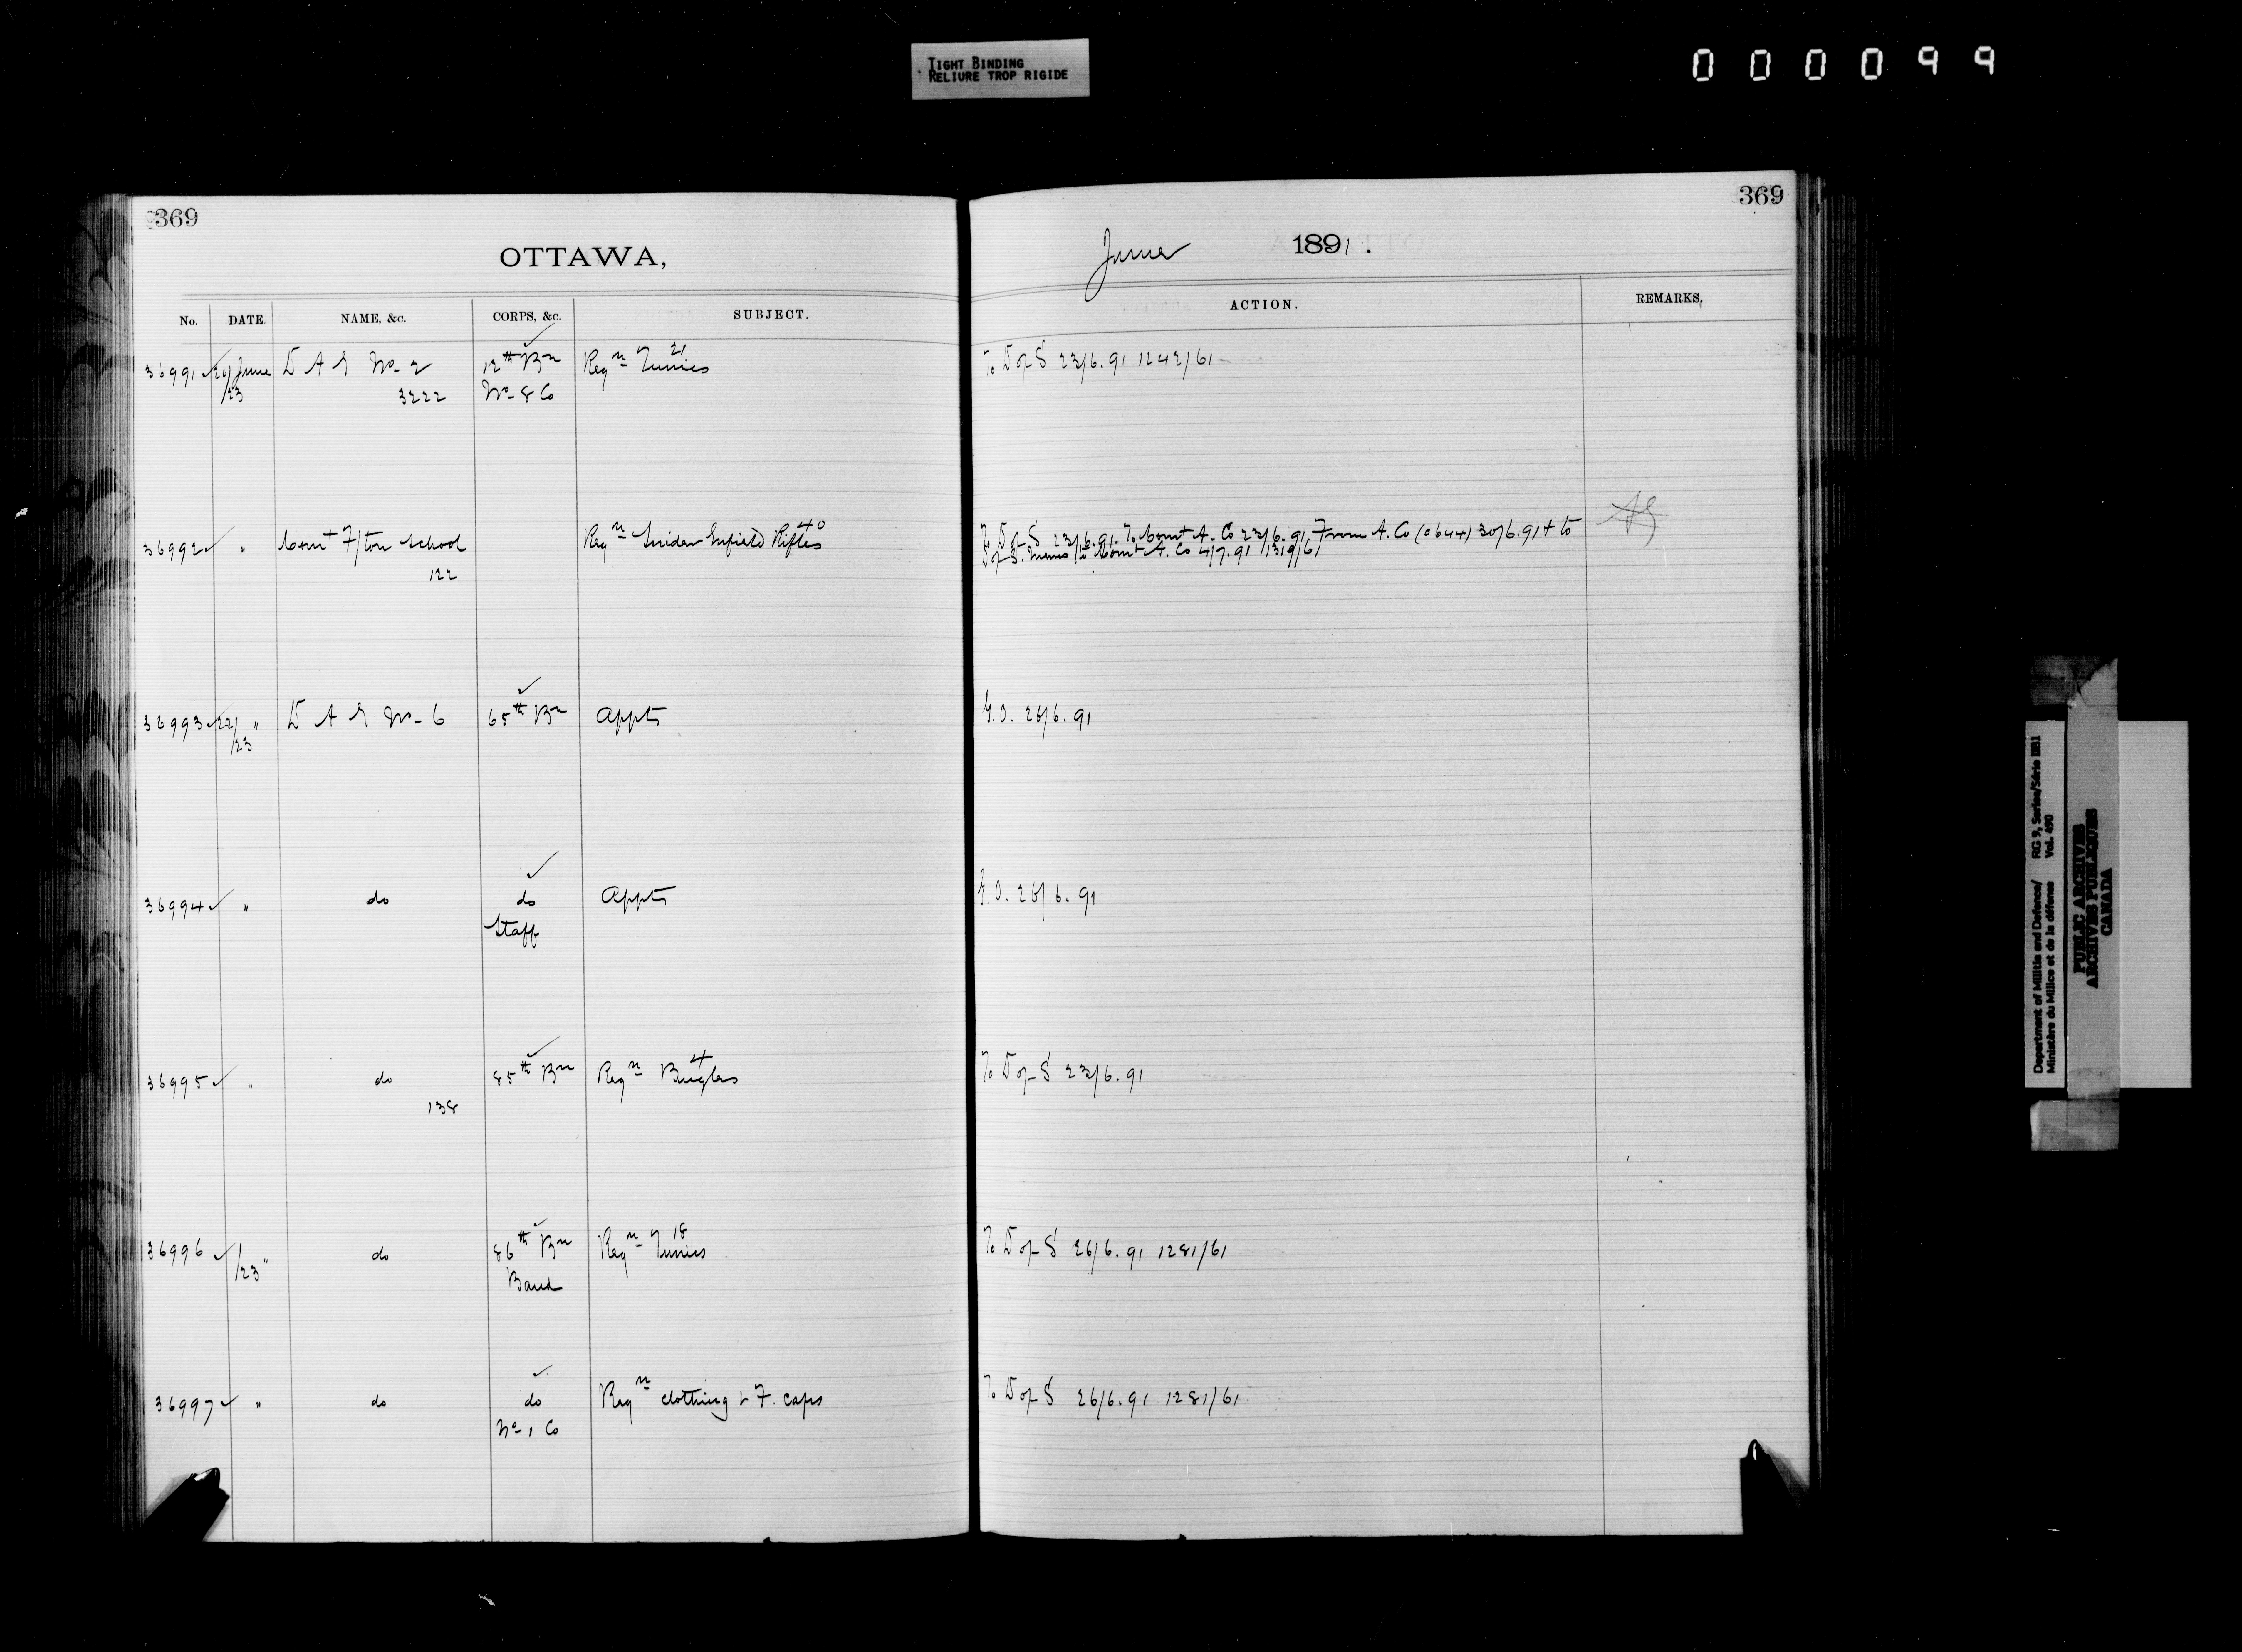 TIGHT BINDING
RELIURE TROP RIGIDE
000099
369
OTTAWA,
No. DATE. NAME, &c. CORPS, &c. SUBJECT.
36991 20/June D A G No- 2 12th Bn Reqn 21 Tunics
/23 3222 No- 8 Co
36992 " Comt F/ton School Reqn Snider Enfield Rifles 40
122
36993 22/ " D A G No- 6 65th Bn Appts
/23
36994 " do do Appts
Staff
36995 " do 85th Bn Reqn 4 Bugles
138
36996 /23 " do 86th Bn Reqn 18 Tunics
Band
36997 " do do Reqn clothing & F. caps
No- 1 Co
369
June 1891.
ACTION. REMARKS,
To D of S 23/6.91 1242/61
To D of S 23/6.91. To Comt A. Co 23/6.91, From A. Co (0644) 30/6.91 & to
D of S. Memo to Comt A. Co 4/7.91 1319/61
G.O. 26/6.91
G.O. 26/6.91
To D of S 23/6.91
To D of S 26/6.91 1281/61
To D of S 26/6.91 1281/61
Department of Militia and Defence/ RG 9, Series/Série IIB1
Ministère du Milice et de la défense Vol. 490
PUBLIC ARCHIVES
ARCHIVES PUBLIQUES
CANADA